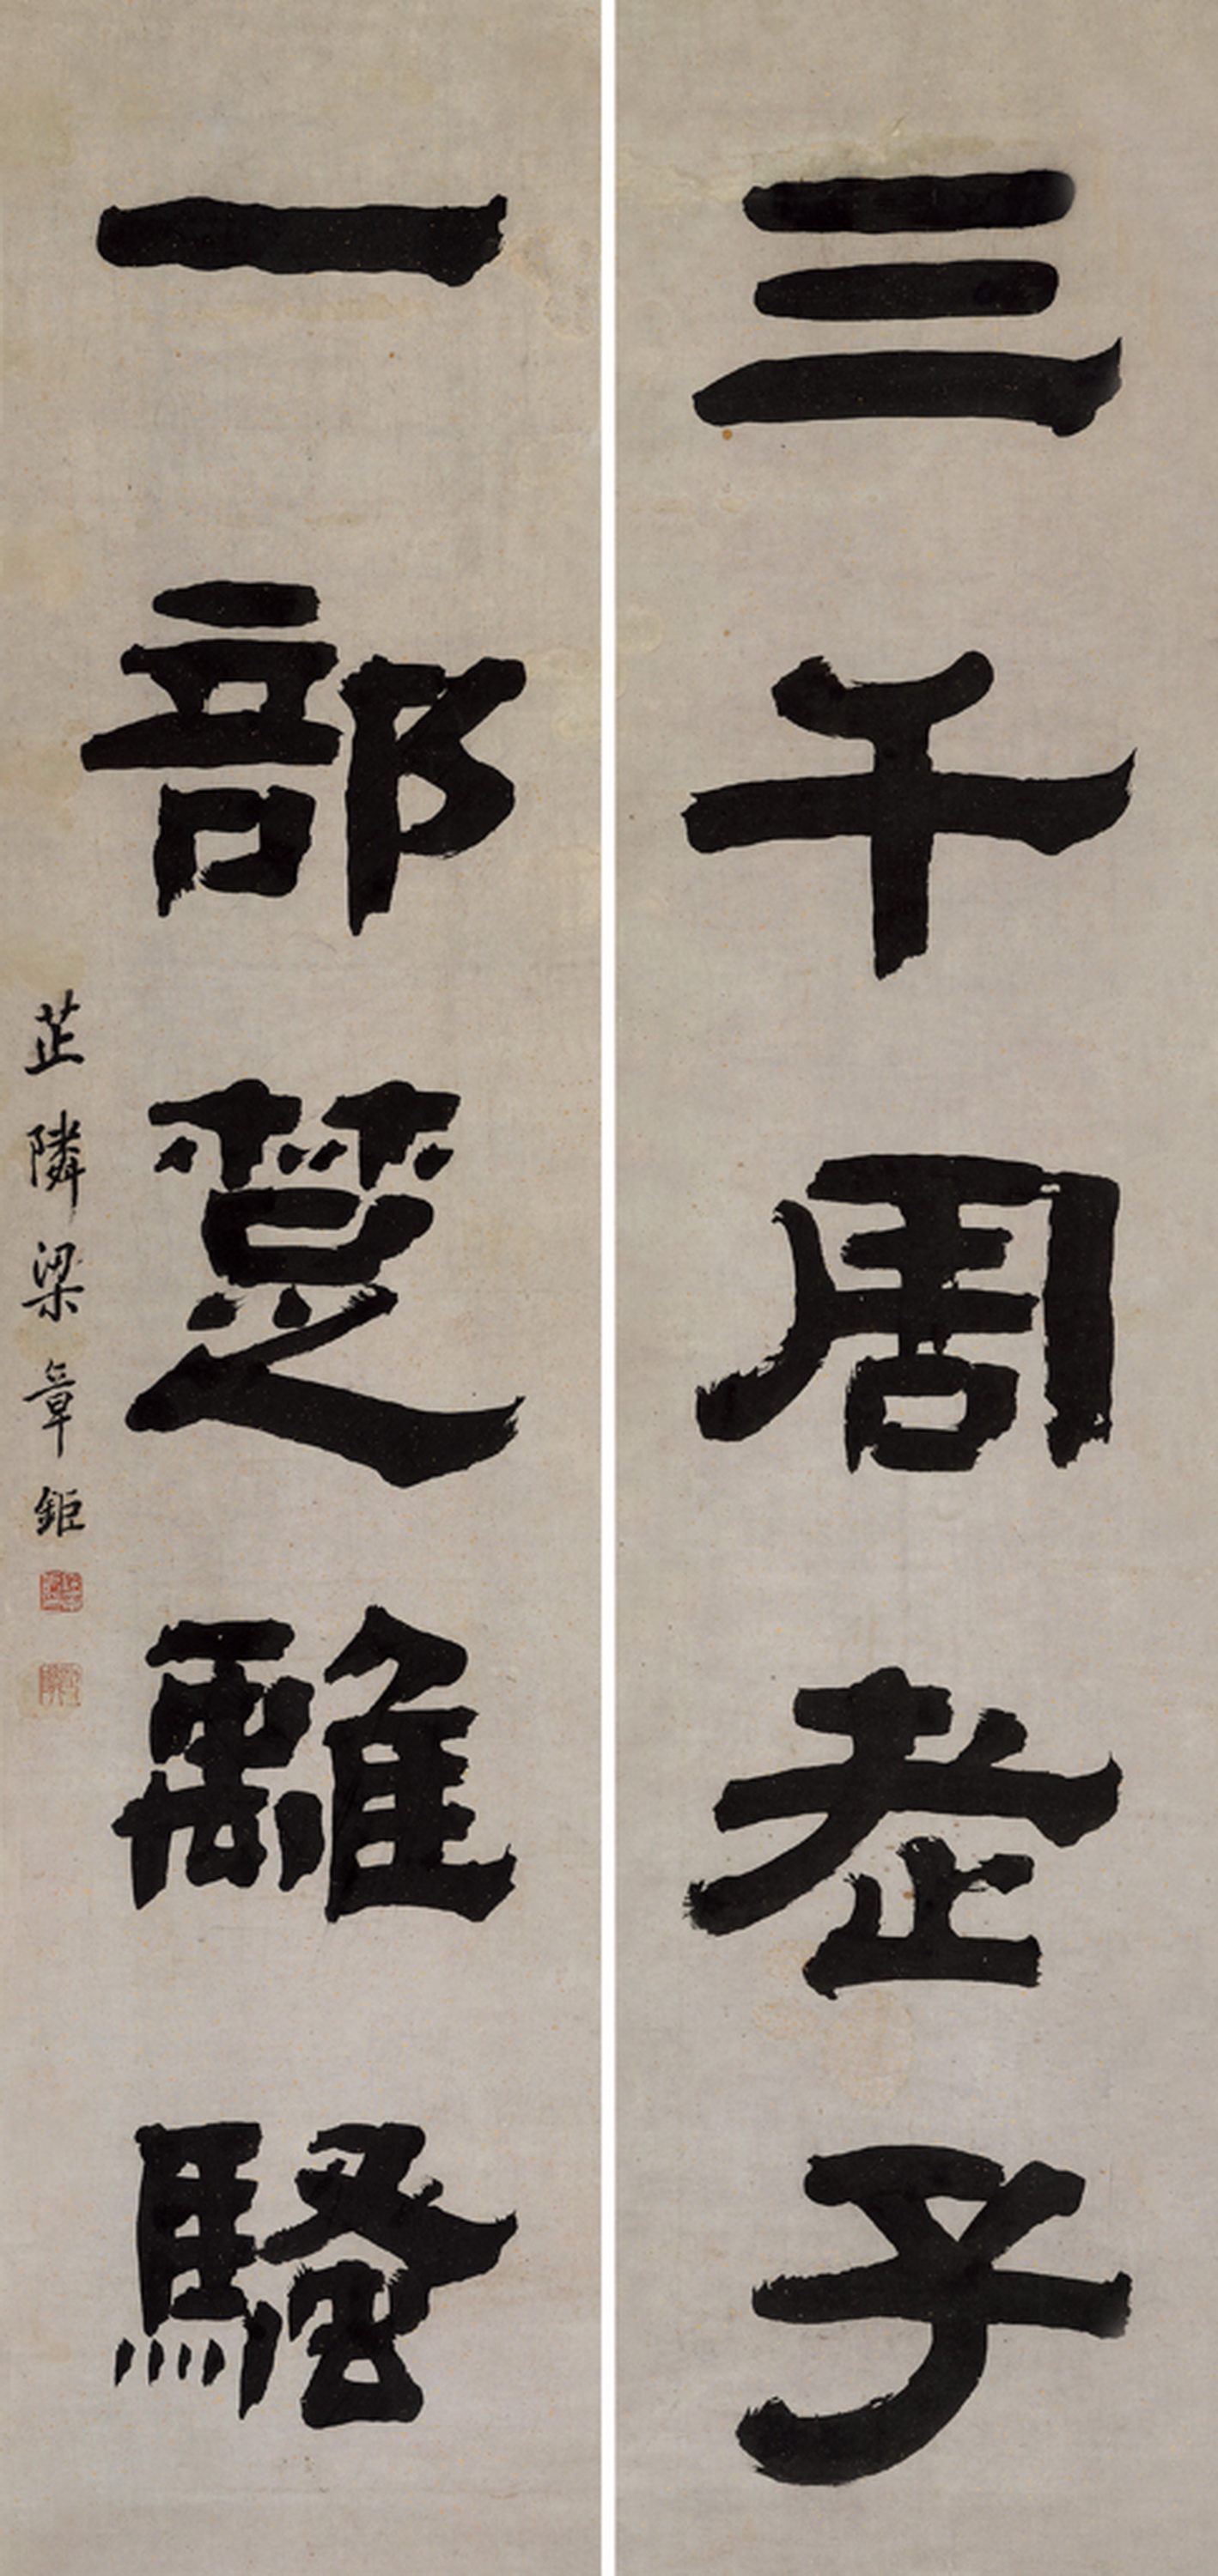 三千周老子
一部楚離騷
芷隣梁章鉅